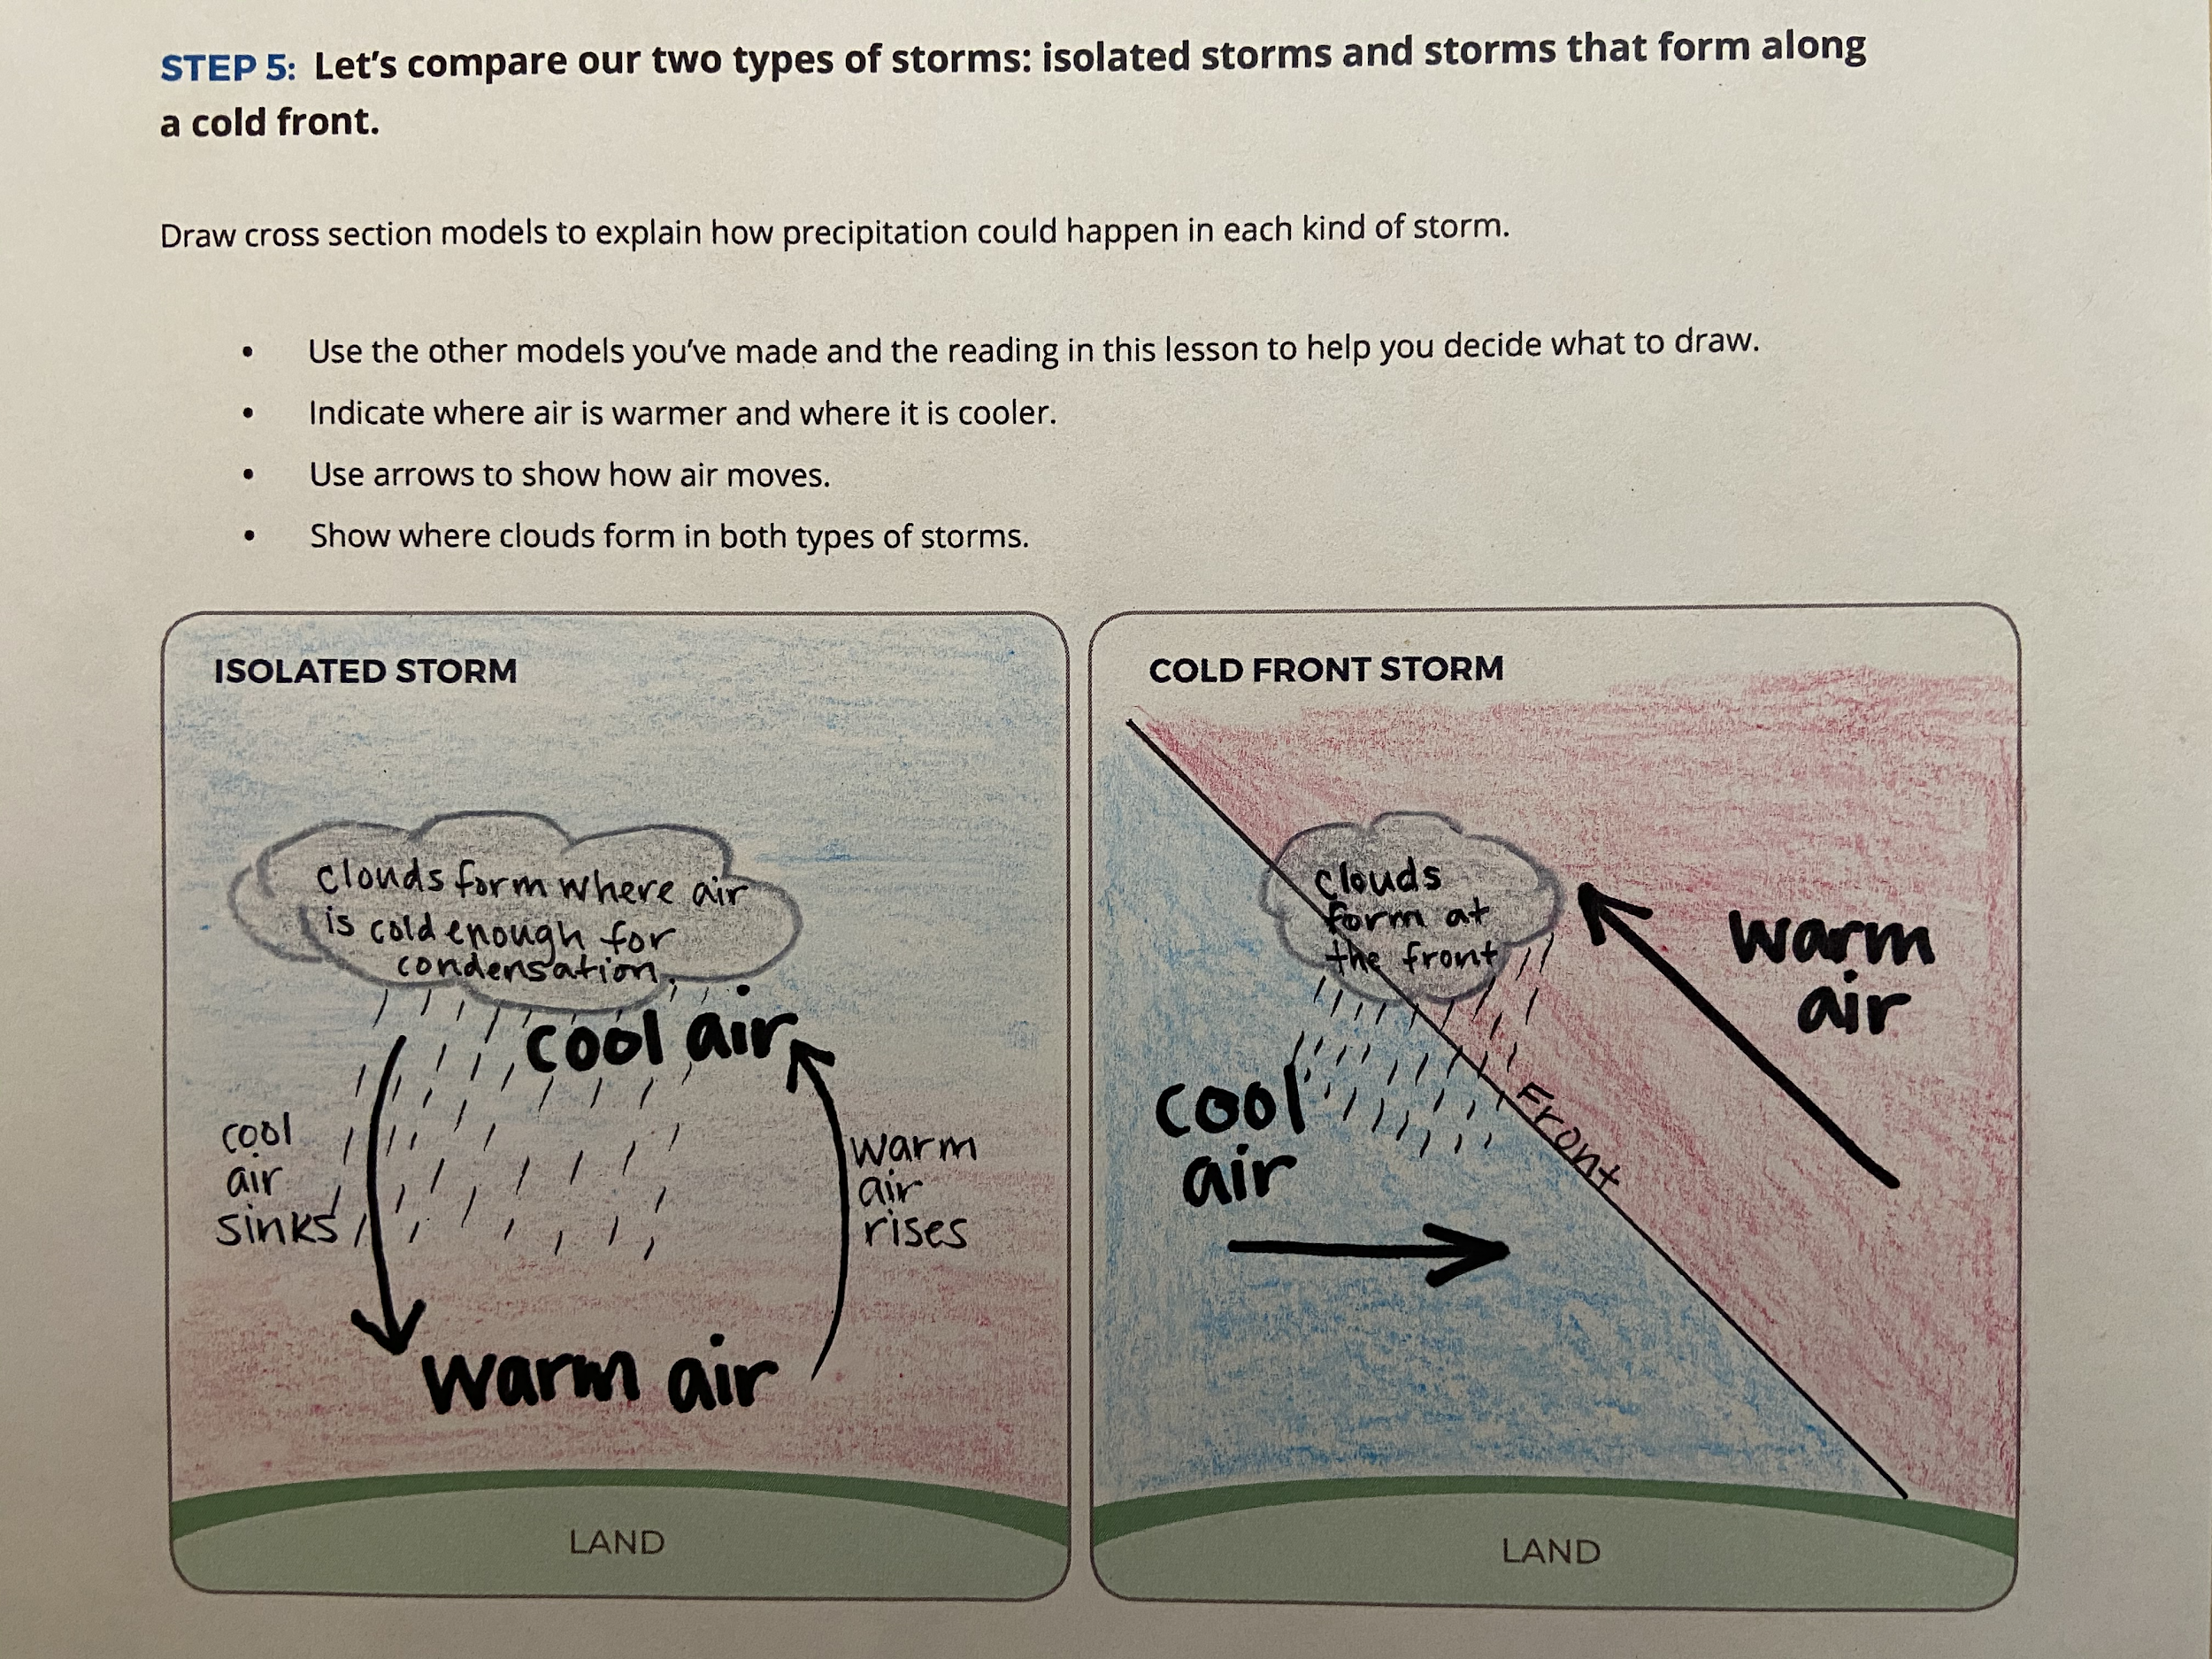 STEP 5: Let's compare our two types of storms: isolated storms and storms that form along
a cold front.
Draw cross section models to explain how precipitation could happen in each kind of storm.
• Use the other models you've made and the reading in this lesson to help you decide what to draw.
• Indicate where air is warmer and where it is cooler.
• Use arrows to show how air moves.
• Show where clouds form in both types of storms.
ISOLATED STORM
clouds form where air
is cold enough for
condensation.
cool air
cool
air
sinks
warm
air
rises
warm air
LAND
COLD FRONT STORM
clouds
form at
the front
warm
air
cool
air
Front
LAND